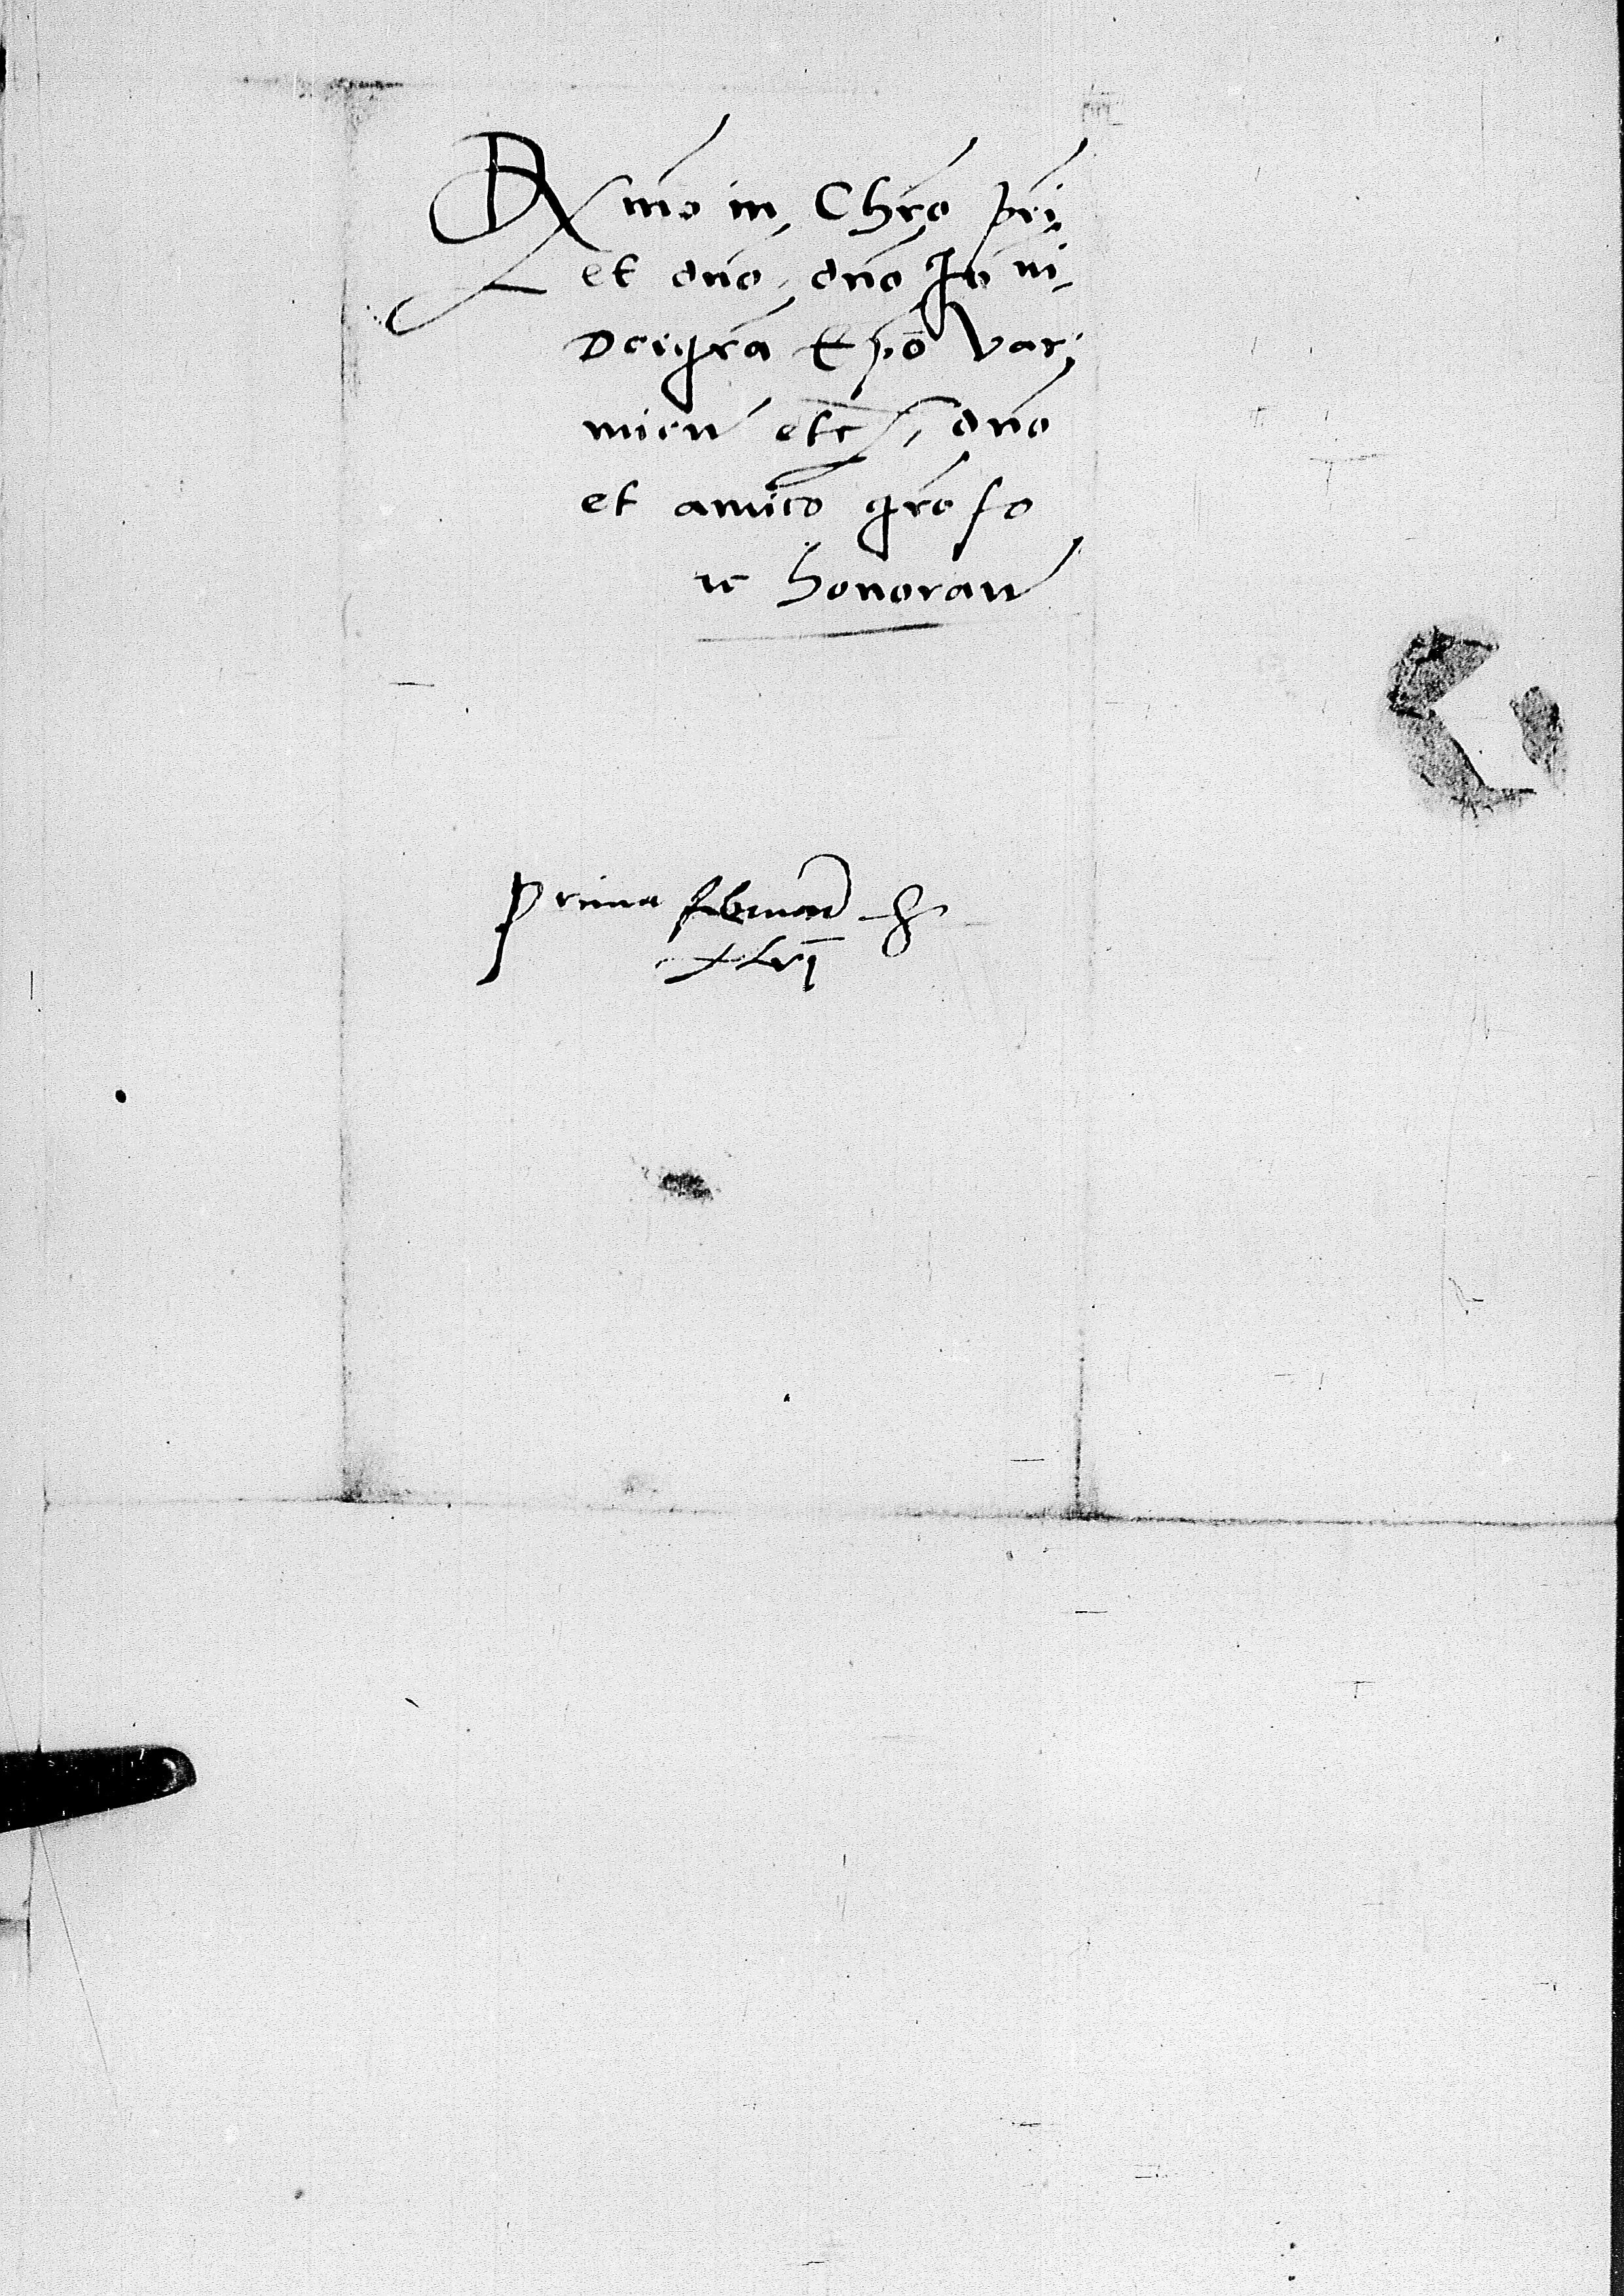 Rmo in Chro pri
et dno, dno Jo ni
Dei gra Epo var
mien etc, dno
et amico gro so
re honoran
Prima februar
xlvi